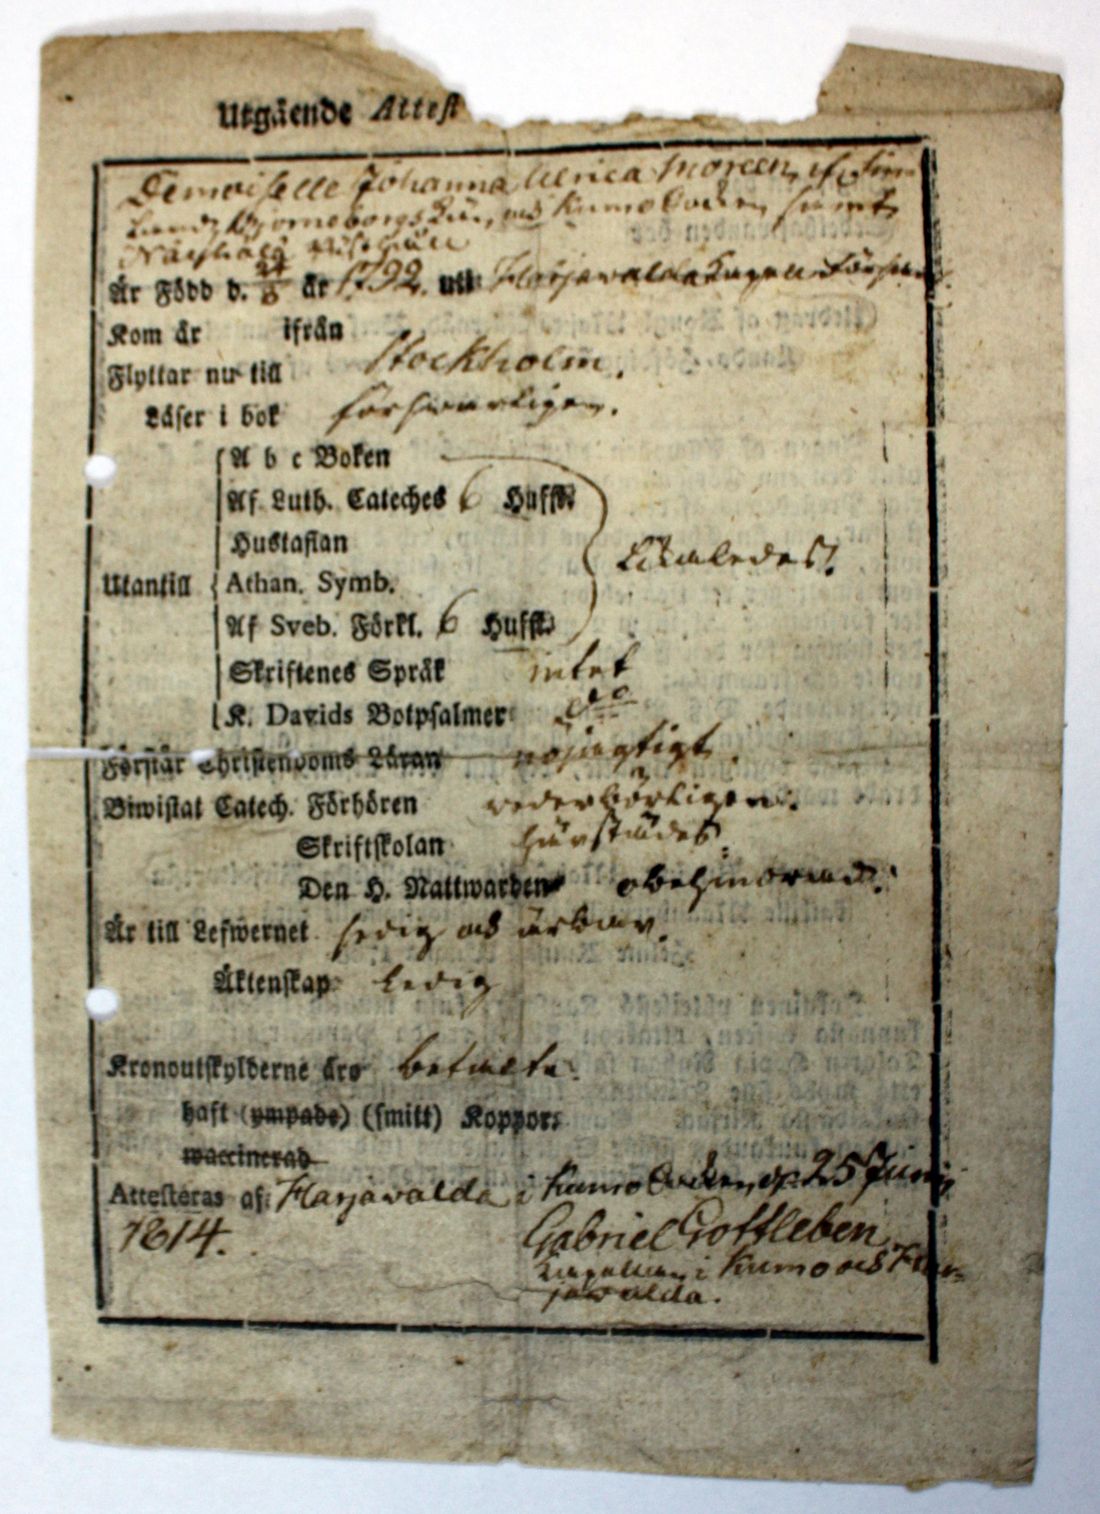 Utgående Attest
Demoiselle Johanna Ulrica Moreen, af Fin-
lands Björneborgs Län, och Kumo Socken samt
Är Född d. 24/8 år 1792. uti Harjawalda Capell Församl.
Kom år ifrån
Flyttar nu till Stockholm.
Läser i bok försvarligen.
A b c Boken
Af Luth. Cateches 6 Hufst.
Hustaflan
Likaledes.
Utantill Athan. Symb.
Af Sveb. Förkl. 6 Hufst.
Skriftenes Språk intet
K. Davids Botpsalmer do
Förstår Christendoms Läran nöjagtigt.
Biwistat Catech. Förhören wederbörligen.
Skriftskolan härstädes.
Den H. Nattwarden obehindrad.
Är till Lefwernet sedig och ärbar.
Äktenskap ledig
Kronoutskylderne äro betalte.
haft (ympade) (smitt) Koppor.
waccinerad
Attesteras af Harjawalda i Kumo Socken, d. 25 Junij
1814. Gabriel Gottleben
Capellan i Kumo och Har-
jawalda.